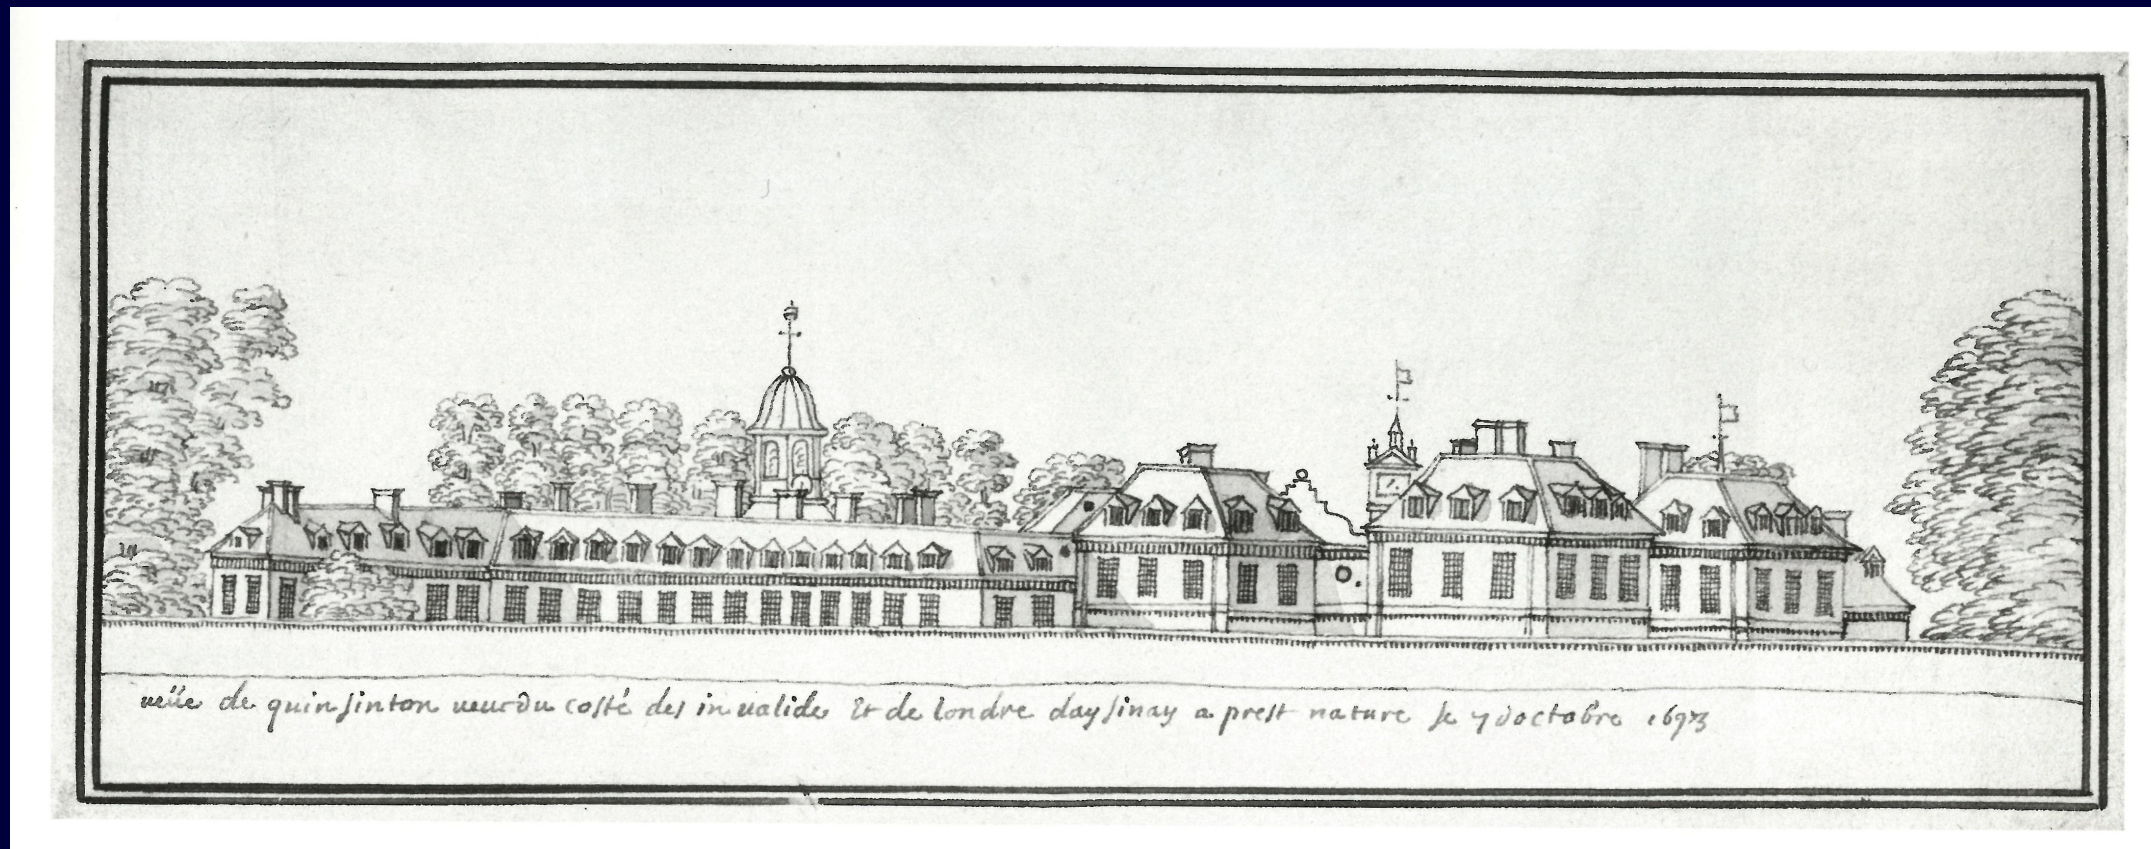 veüe de quinsinton veue du costé des invalide et de londre daysinay a prest nature le 7 doctobre 1693